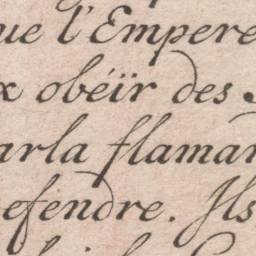 que l'Empere
x obéïr des
arla flaman
efendre. Ils